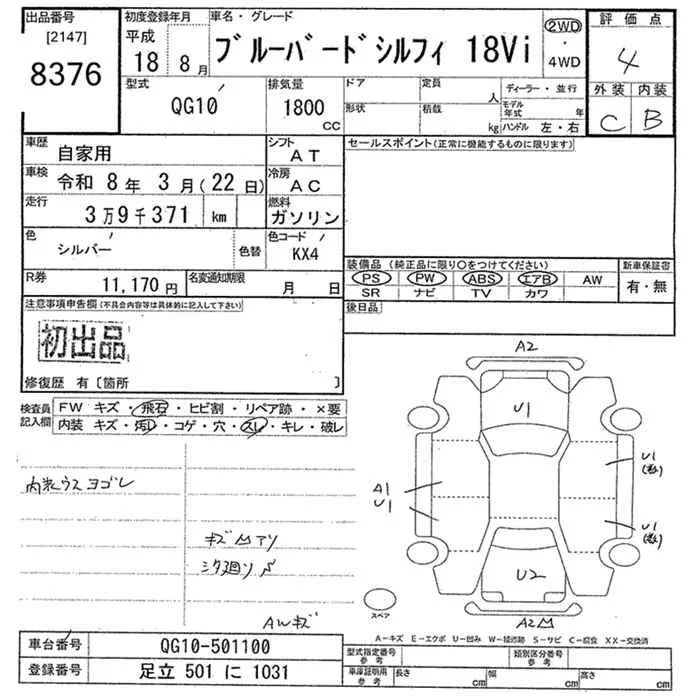 出品番号
[2147]
8376
初度登録年月
平成
18 8月
車名・グレード
ブルーバードシルフィ 18Vi
2WD
・
4WD
評価点
4
外装 内装
C B
型式
QG10
排気量
1800
CC
ドア
形状
定員
人
積載
kg
ディーラー・並行
モデル年式 年
ハンドル 左・右
車歴
自家用
シフト
AT
セールスポイント(正常に機能するものに限ります)
車検
令和 8年 3月(22日)
冷房
AC
走行
3万9千371 km
燃料
ガソリン
色
シルバー
色替
色コード
KX4
R券
11,170円
名変通知期限
月 日
装備品(純正品に限り○をつけてください)
PS PW ABS エアB AW
SR ナビ TV カワ
新車保証書
有・無
後日品
注意事項申告欄(不具合内容等は具体的に記入して下さい)
初出品
修復歴 有〔箇所 〕
検査員記入欄
FW キズ・飛石・ヒビ割・リペア跡・×要
内装 キズ・汚レ・コゲ・穴・スレ・キレ・破レ
内装ウスヨゴレ
キズ凹アリ
シタ廻リS
AWキズ
A2
U1
A1
U1
U1
U1
U2
A2凹
スペア
A-キズ E-エクボ U-凹み W-補修跡 S-サビ C-腐食 XX-交換済
車台番号
QG10-501100
登録番号
足立 501 に 1031
型式指定番号
参考
類別区分番号
参考
車庫証明用
参考
長さ cm
幅 cm
高さ cm